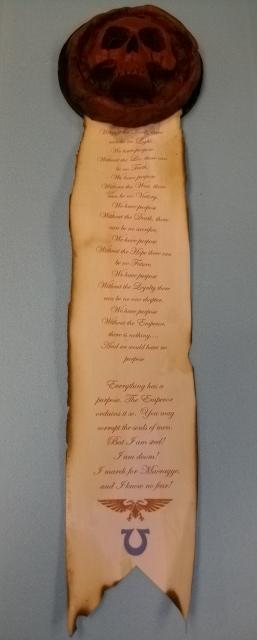 there
can be no Light.
We have purpose
Without the Lie, there can
be no Truth.
We have purpose
Without the War, there
can be no Victory.
We have purpose
Without the Death, there
can be no sacrifice.
We have purpose
Without the Hope there can
be no Future
We have purpose
Without the Loyalty there
can be no one chapter.
We have purpose
Without the Emperor,
there is nothing....
And we would have no
purpose
Everything has a
purpose. The Emperor
ordains it so. You may
corrupt the souls of men.
But I am steel!
I am doom!
I march for Macragge,
and I know no fear!